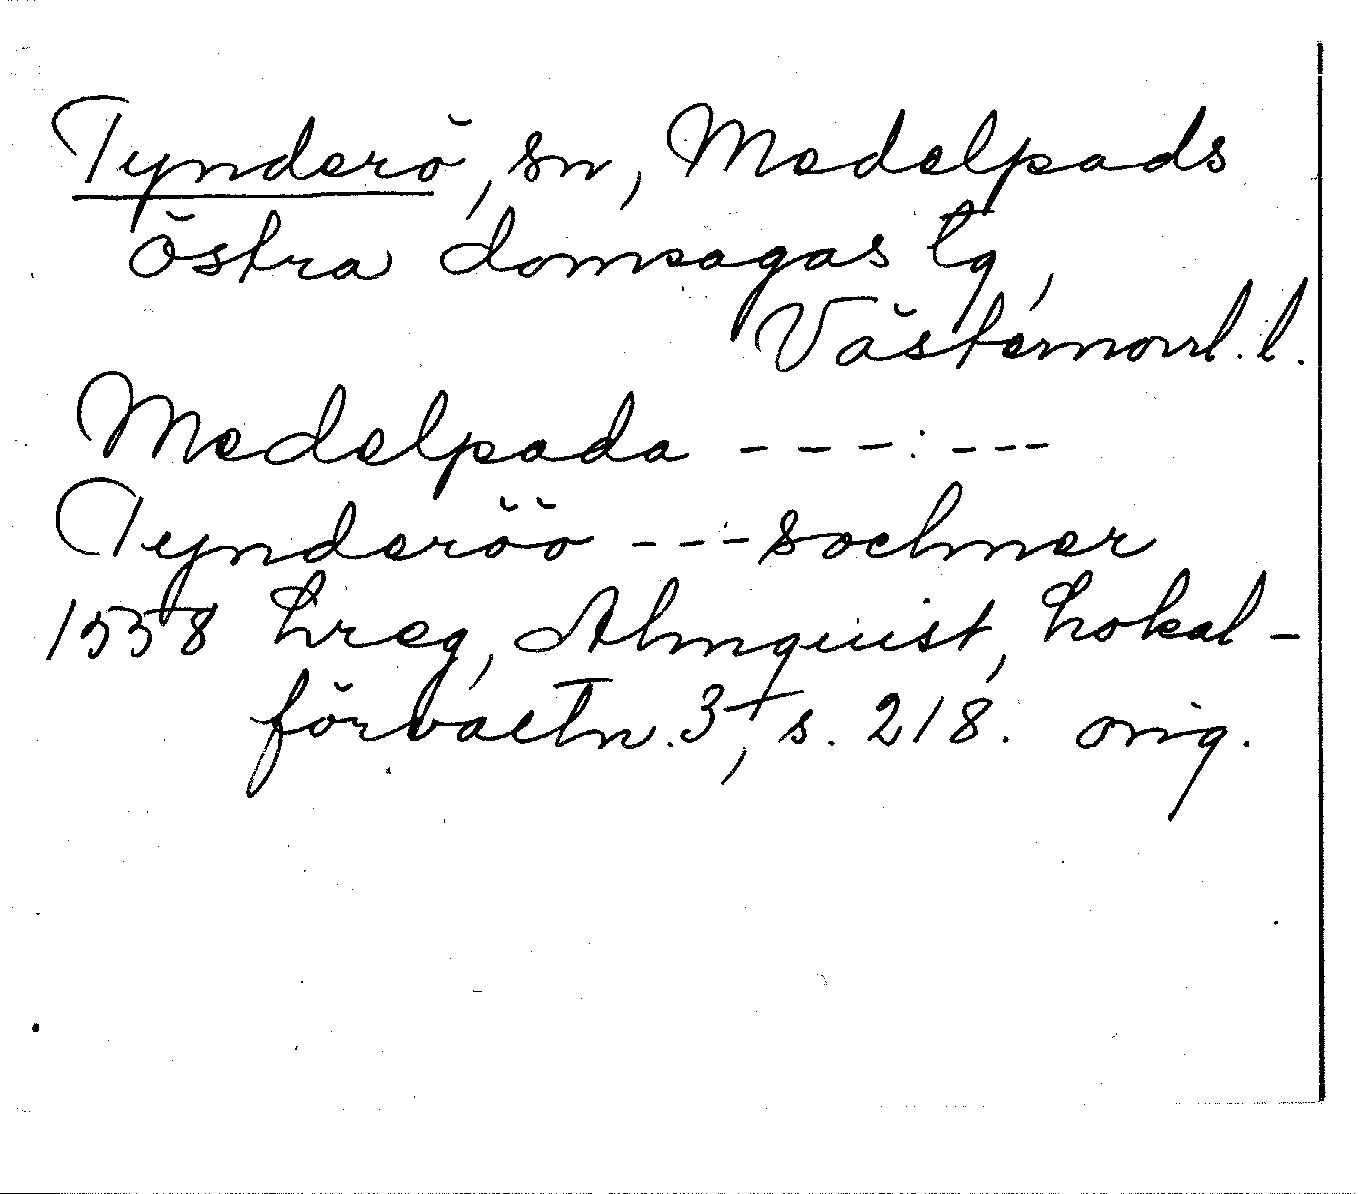 Tynderö, sn, Medelpads
östra domsagas tg,
Västernorrl. l.
Medelpada ---:---
Tynderöö --- sochner
1558 Lreg, Almquist, Lokal-
förvaltn. 3+, s. 218. orig.